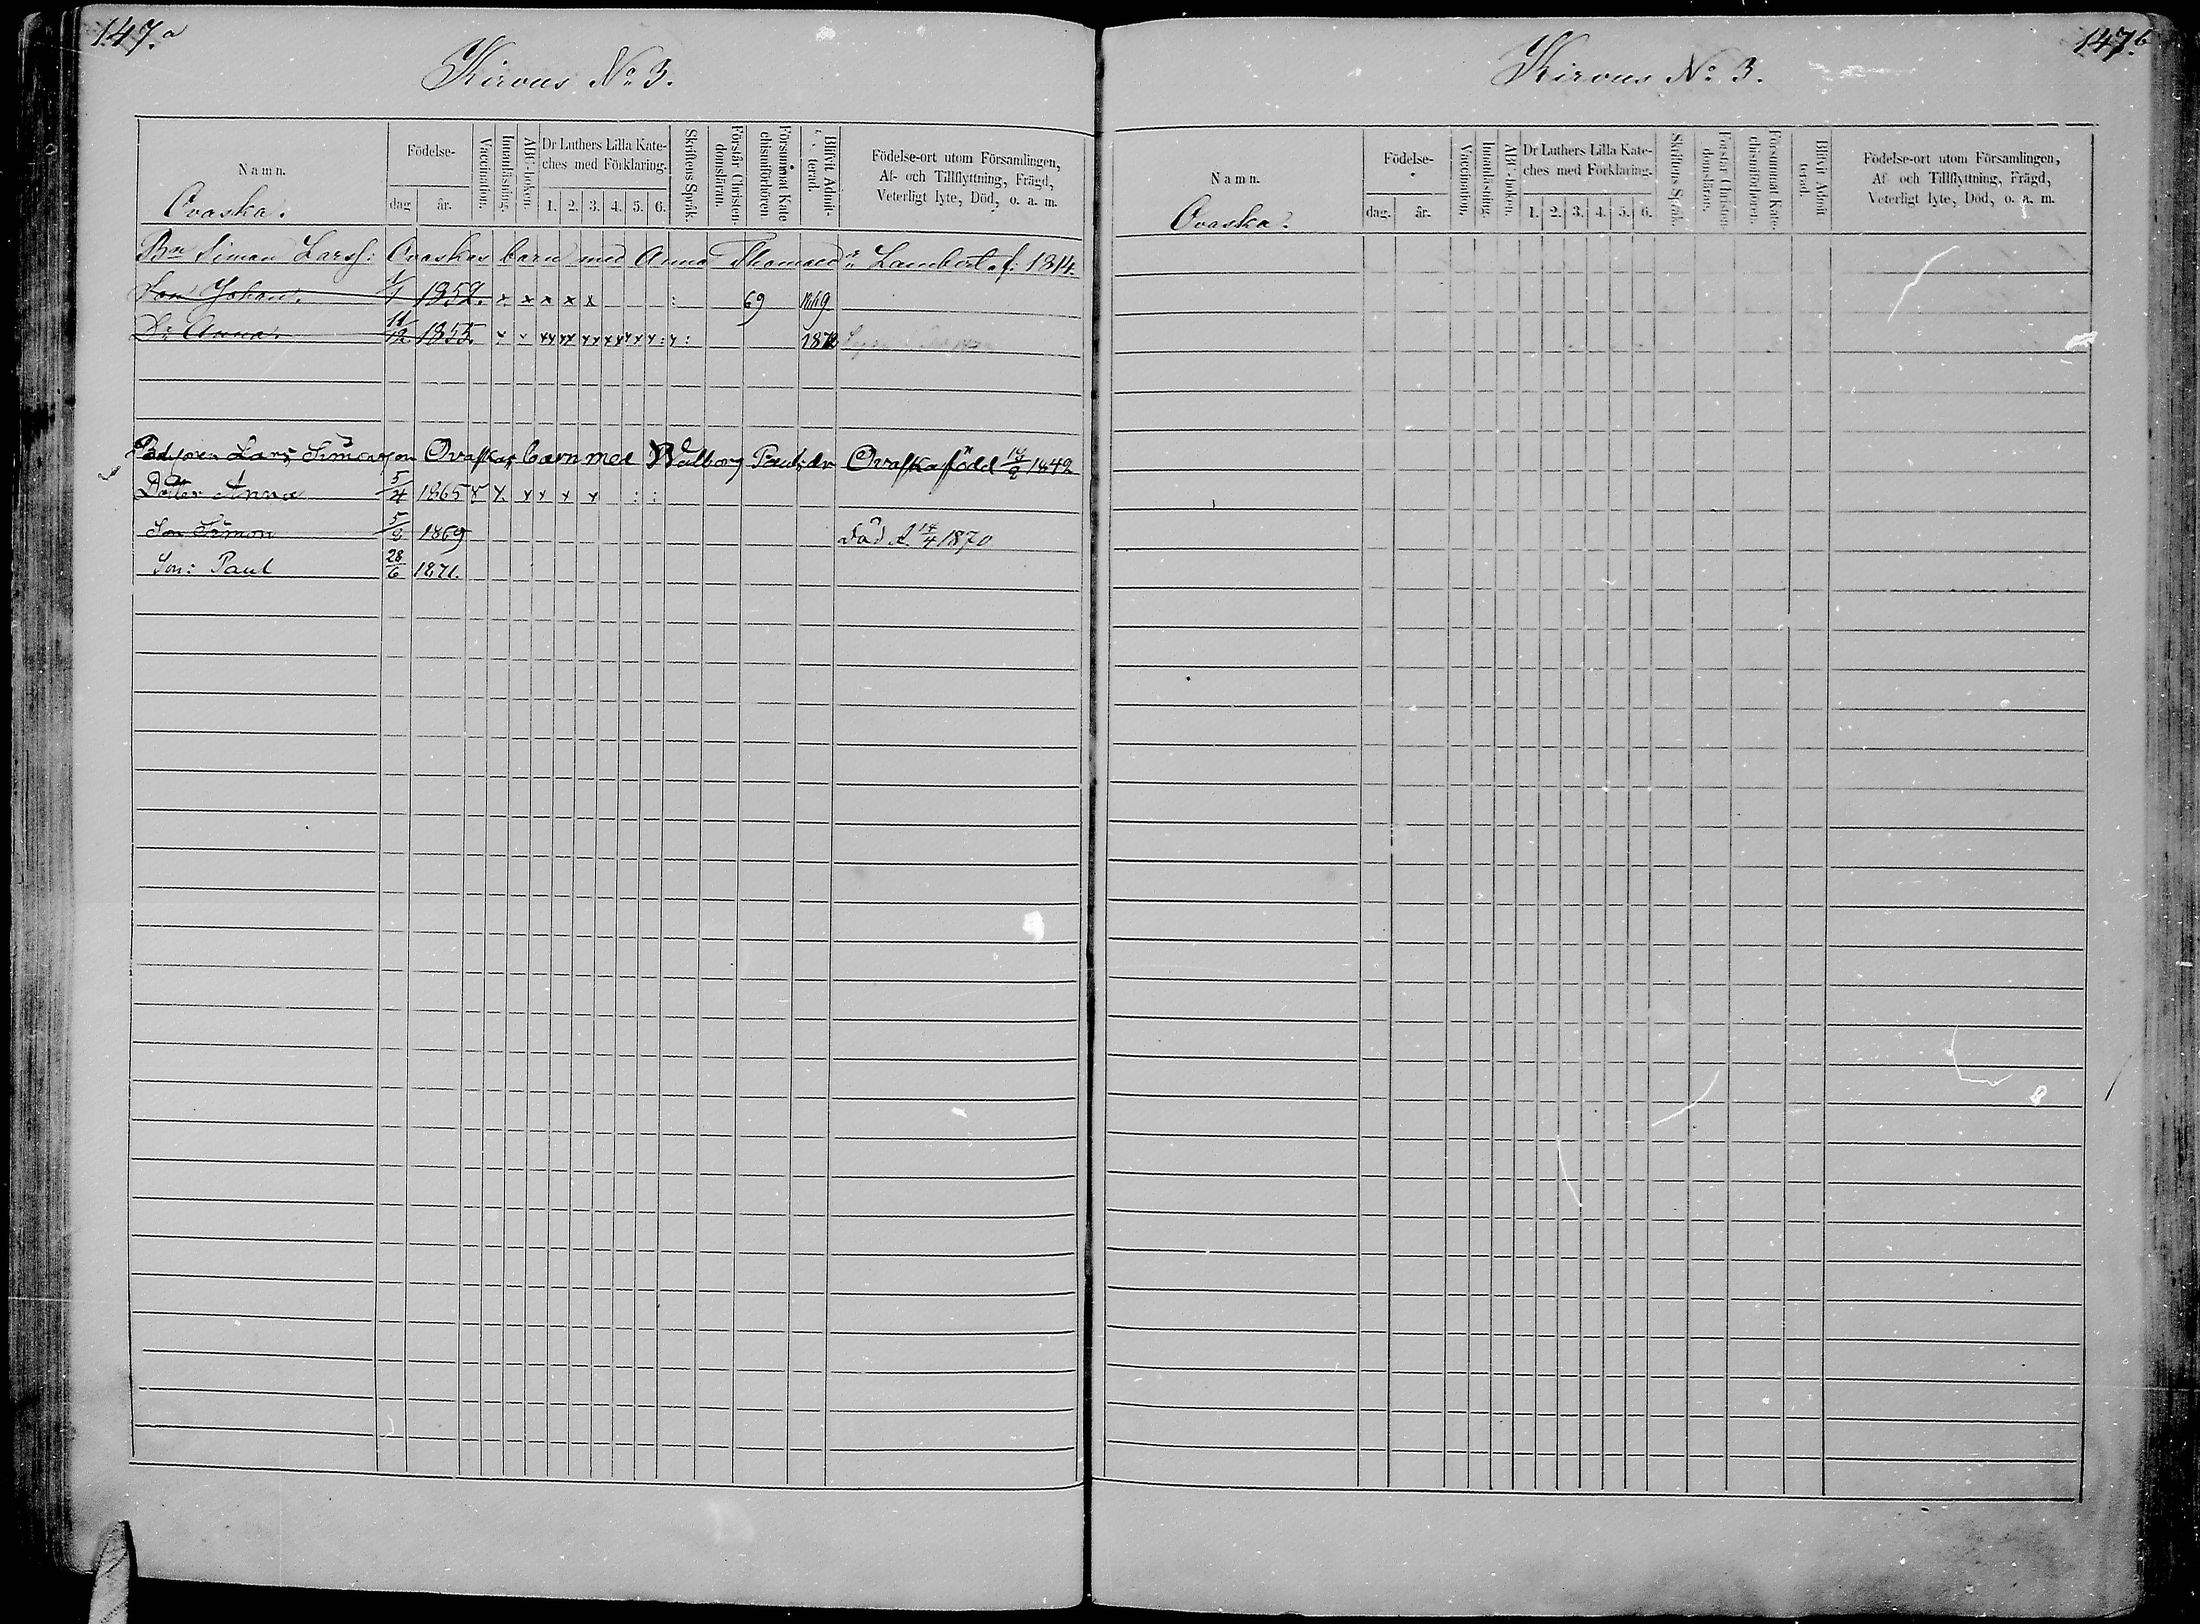 147.a
Kirvus No 3.
Namn.
Ovaska.
Födelse-
dag
år.
Vaccination.
Innanläsning.
ABC-boken.
Dr Luthers Lilla Kate-
ches med Förklaring.
1. 2. 3. 4. 5. 6.
Skriftens Språk.
Förstår Christen-
domsläran.
Försummat Kate-
chismiförhören
Blifvit Admit-
terad.
Födelse-ort utom Församlingen,
Af- och Tillflyttning, Frägd,
Veterligt lyte, Död, o. a. m.
Bn Simon Larss: Ovaskas barn med Anna Thomaed:r Lambert f: 1814
Son Johan. 1852. x x x x x : 69 1869
D:r Anna. 11/12 1855.
Lars Simonson Ovaskas barn med Walborg Paulsdr Ovaska född 1842
Dotter Anna 5/4 1865 x x x x x x : :
Son Simon 1869 död d. 14/4 1870
Son: Paul 28/6 1871.
147.b
Kirvus No 3.
Namn.
Ovaska.
Födelse-
dag.
år.
Vaccination.
Innanläsning.
ABC-boken.
Dr Luthers Lilla Kate-
ches med Förklaring.
1. 2. 3. 4. 5. 6.
Skriftens Språk.
Förstår Christen-
domsläran.
Försummat Kate-
chismiförhören.
Blifvit Admit-
terad.
Födelse-ort utom Församlingen,
Af- och Tillflyttning, Frägd,
Veterligt lyte, Död, o. a. m.